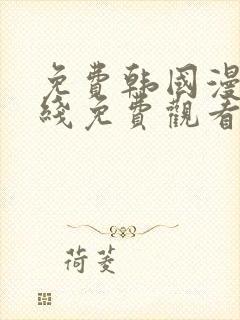 免費韩國漫
綫免費觀看
荷菱